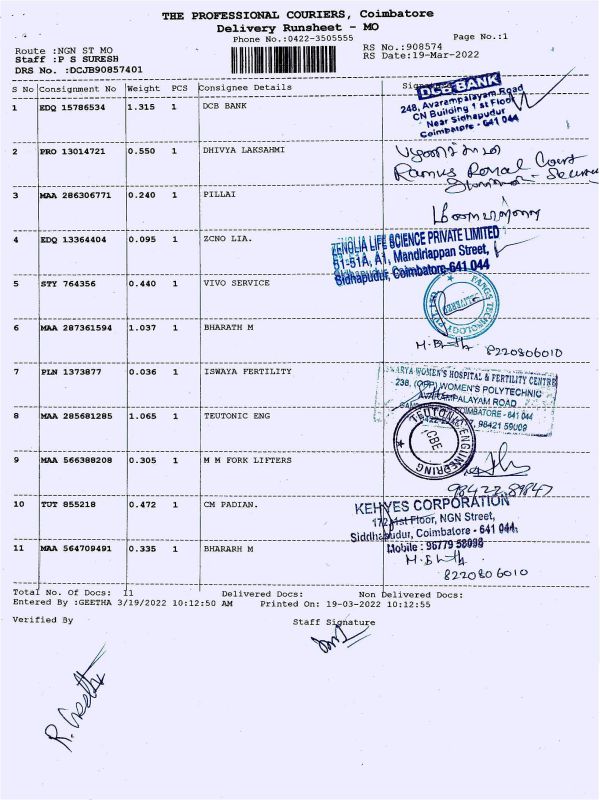 THE PROFESSIONAL COURIERS, Coimbatore
Delivery Runsheet - MO
Phone No.:0422-3505555
Page No.:1
Route :NGN ST MO
RS No.:908574
Staff :P S SURESH
RS Date:19-Mar-2022
DRS No. :DCJB90857401
S No Consignment No Weight PCS Consignee Details
1 EDQ 15786534 1.315 1 DCB BANK
DCB BANK
248, Avarampalayam Road
CN Building 1st Floor
Near Sidhapudur
Coimbatore - 641 044
2 PRO 13014721 0.550 1 DHIVYA LAKSAHMI
Court
3 MAA 286306771 0.240 1 PILLAI
4 EDQ 13364404 0.095 1 ZCNO LIA.
ZENOLIA LIFE SCIENCE PRIVATE LIMITED
51-51A, A1, Mandiriappan Street,
Sidhapudur, Coimbatore-641 044
5 STY 764356 0.440 1 VIVO SERVICE
PANGS TECHNOLOGY PVT LTD
DELIVERED
6 MAA 287361594 1.037 1 BHARATH M
8220806010
7 PLN 1373877 0.036 1 ISWAYA FERTILITY
WOMEN'S HOSPITAL & FERTILITY CENTRE
238, (OPP) WOMEN'S POLYTECHNIC
ROAD
COIMBATORE - 641 044
98421 59009
8 MAA 285681285 1.065 1 TEUTONIC ENG
TEUTONIC ENGINEERING
CBE
9 MAA 566388208 0.305 1 M M FORK LIFTERS
98422 89847
10 TUT 855218 0.472 1 CM PADIAN.
KEHYES CORPORATION
172, 1st Floor, NGN Street,
Siddhapudur, Coimbatore - 641 044.
Mobile : 96779 58098
11 MAA 564709491 0.335 1 BHARARH M
8220806010
Total No. Of Docs: 11 Delivered Docs: Non Delivered Docs:
Entered By :GEETHA 3/19/2022 10:12:50 AM Printed On: 19-03-2022 10:12:55
Verified By Staff Signature
R. Geetha